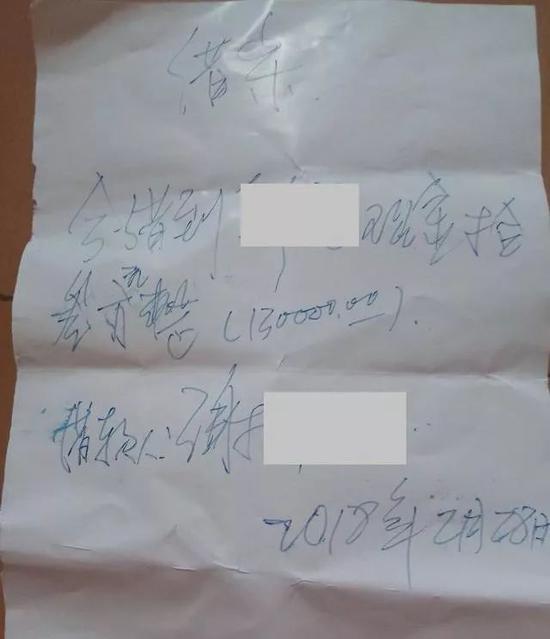 借条
今借到 现金拾
叁万元整(130000.00).
借款人:谢
2018年2月28日